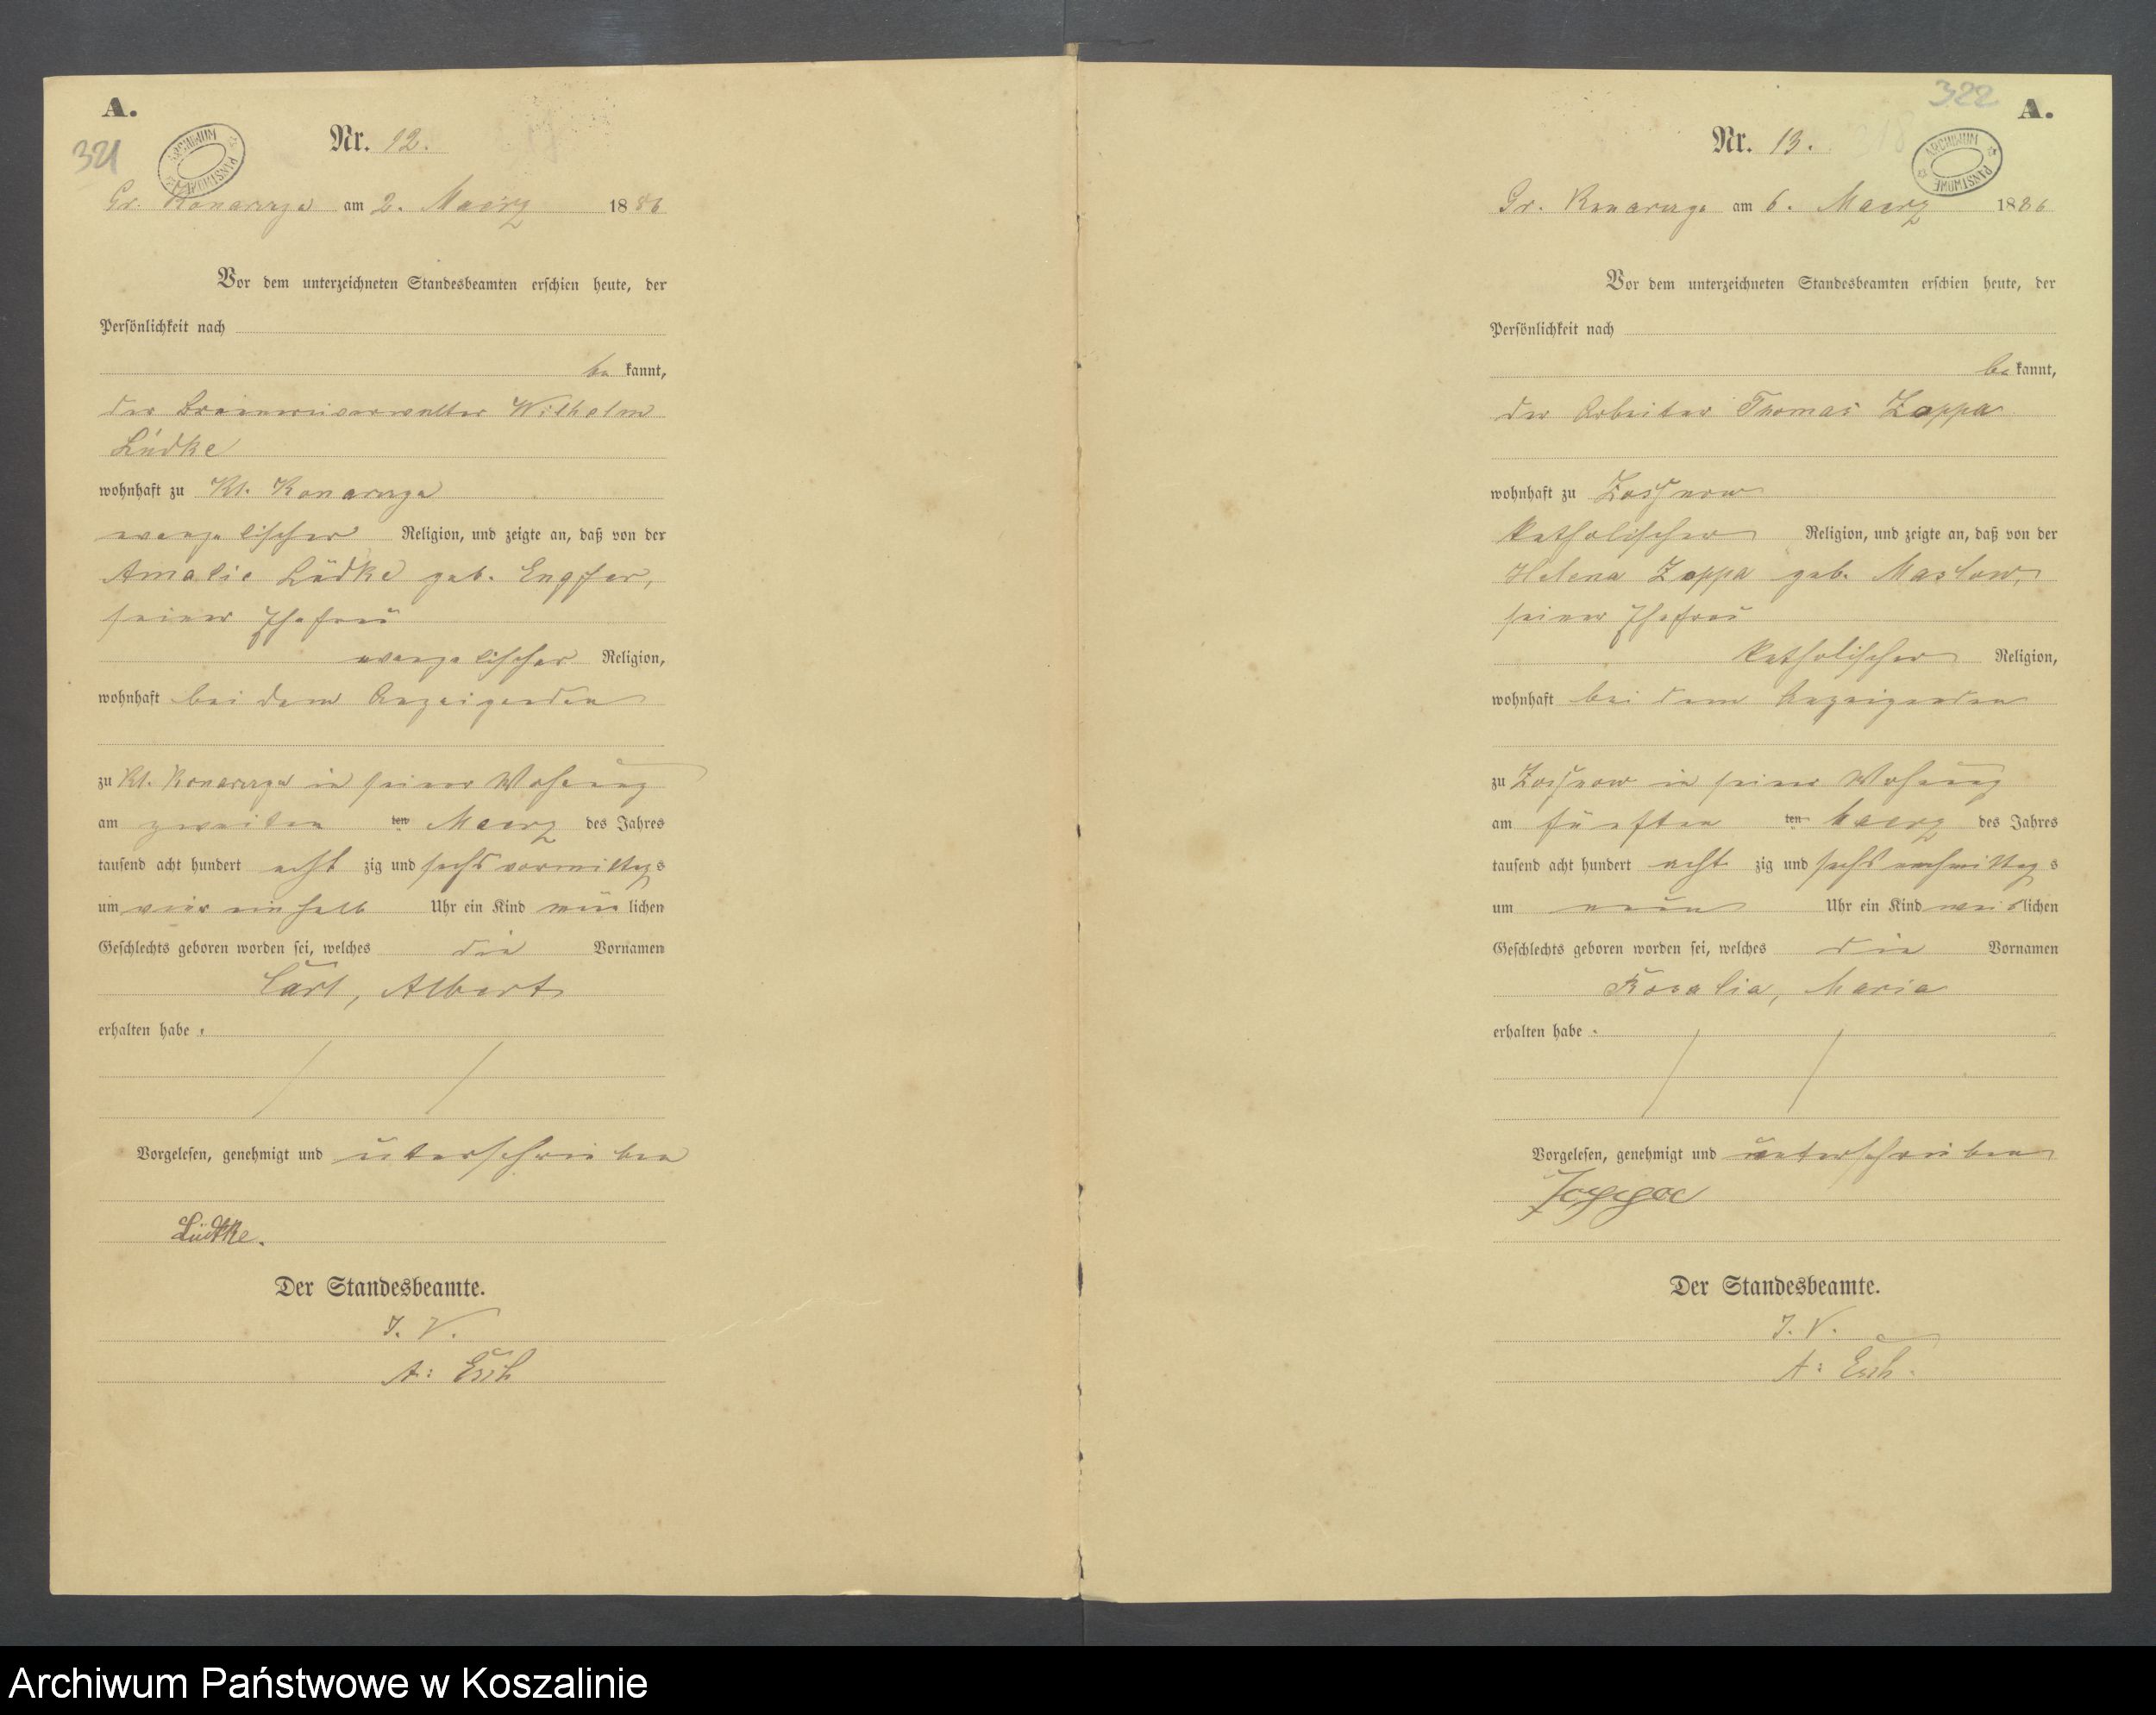 A.
321
ARCHIWUM PAŃSTWOWE
Nr. 12.
Gr. Konarczyn am 2. Maerz 1886
Vor dem unterzeichneten Standesbeamten erschien heute, der
Persönlichkeit nach
be kannt,
der Wilhelm
Lüdke
wohnhaft zu Kl. Konarczyn
evangelischer Religion, und zeigte an, daß von der
Amalie Lüdke geb. Engfer,
seiner Ehefrau
evangelischer Religion,
wohnhaft bei dem Anzeigenden
zu Kl. Konarczyn in seiner Wohnung
am zweiten ten Maerz des Jahres
tausend acht hundert acht zig und sechs vormittags
um vier ein halb Uhr ein Kind männlichen
Geschlechts geboren worden sei, welches die Vornamen
Carl, Albert
erhalten habe.
Vorgelesen, genehmigt und unterschrieben
Lüdtke.
Der Standesbeamte.
J. V.
A: Esch
322
A.
ARCHIWUM PAŃSTWOWE
Nr. 13.
Gr. Konarczyn am 6. Maerz 1886
Vor dem unterzeichneten Standesbeamten erschien heute, der
Persönlichkeit nach
be kannt,
der Arbeiter Thomas Zoppa
wohnhaft zu Zossnow
katholischer Religion, und zeigte an, daß von der
Helena Zoppa geb. Maslow,
seiner Ehefrau
katholischer Religion,
wohnhaft bei dem Anzeigenden
zu Zossnow in seiner Wohnung
am fünften ten Maerz des Jahres
tausend acht hundert acht zig und sechs nachmittags
um neun Uhr ein Kind weiblichen
Geschlechts geboren worden sei, welches die Vornamen
Rosalia, Maria
erhalten habe.
Vorgelesen, genehmigt und unterschrieben
Zoppa
Der Standesbeamte.
J. V.
A: Esch.
Archiwum Państwowe w Koszalinie